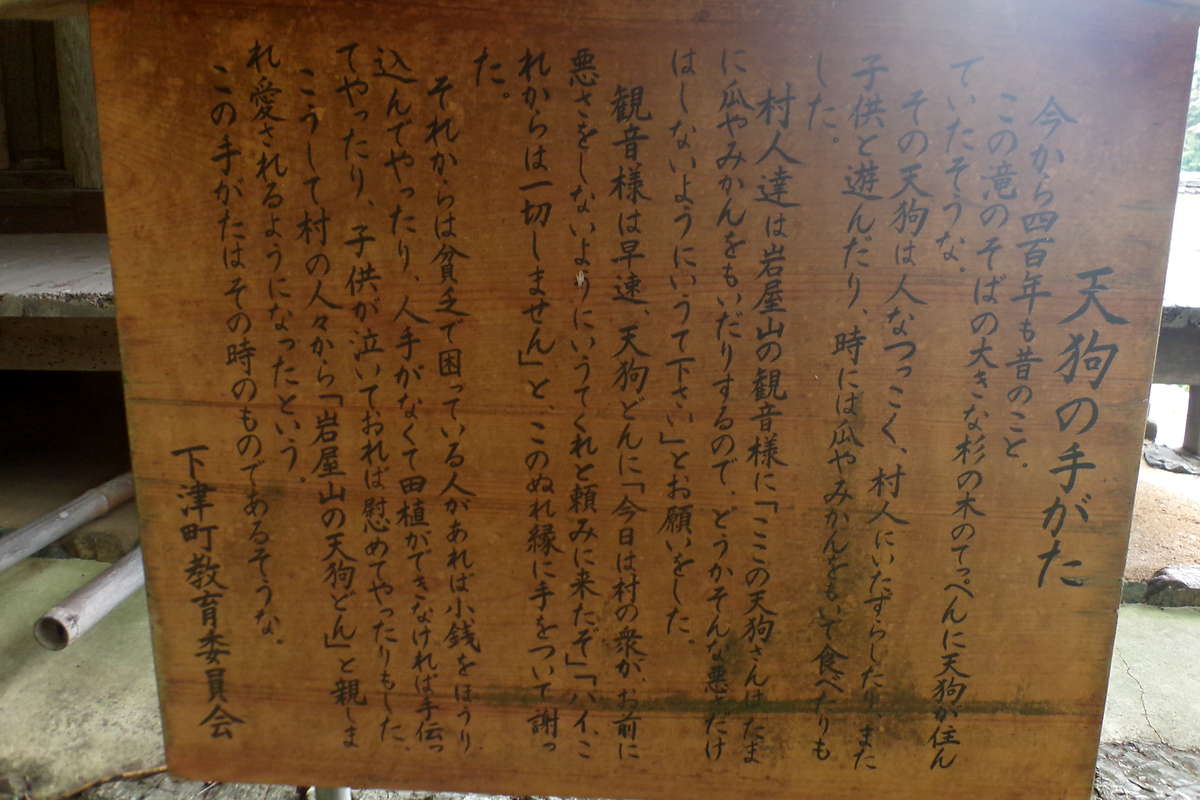 天狗の手がた
今から四百年も昔のこと。
この竜のそばの大きな杉の木のてっぺんに天狗が住ん
でいたそうな。
その天狗は人なつっこく、村人にいたずらしたり、また
子供と遊んだり、時には瓜やみかんをもいで食べたりも
した。
村人達は岩屋山の観音様に「ここの天狗さんは、たま
に瓜やみかんをもいだりするので、どうかそんな悪さだけ
はしないようにいうて下さい」とお願いをした。
観音様は早速、天狗どんに「今日は村の衆が、お前に
悪さをしないよりにいうてくれと頼みに来たぞ」「ハイ、こ
れからは一切しません」と、このぬれ縁に手をついて謝っ
た。
それからは貧乏で困っている人があれば小銭をほうり
込んでやったり、人手がなくて田植ができなければ手伝っ
てやったり、子供が泣いておれば慰めてやったりもした、
こうして村の人々から「岩屋山の天狗どん」と親しま
れ愛されるようになったという。
この手がたはその時のものであるそうな。
下津町教育委員会